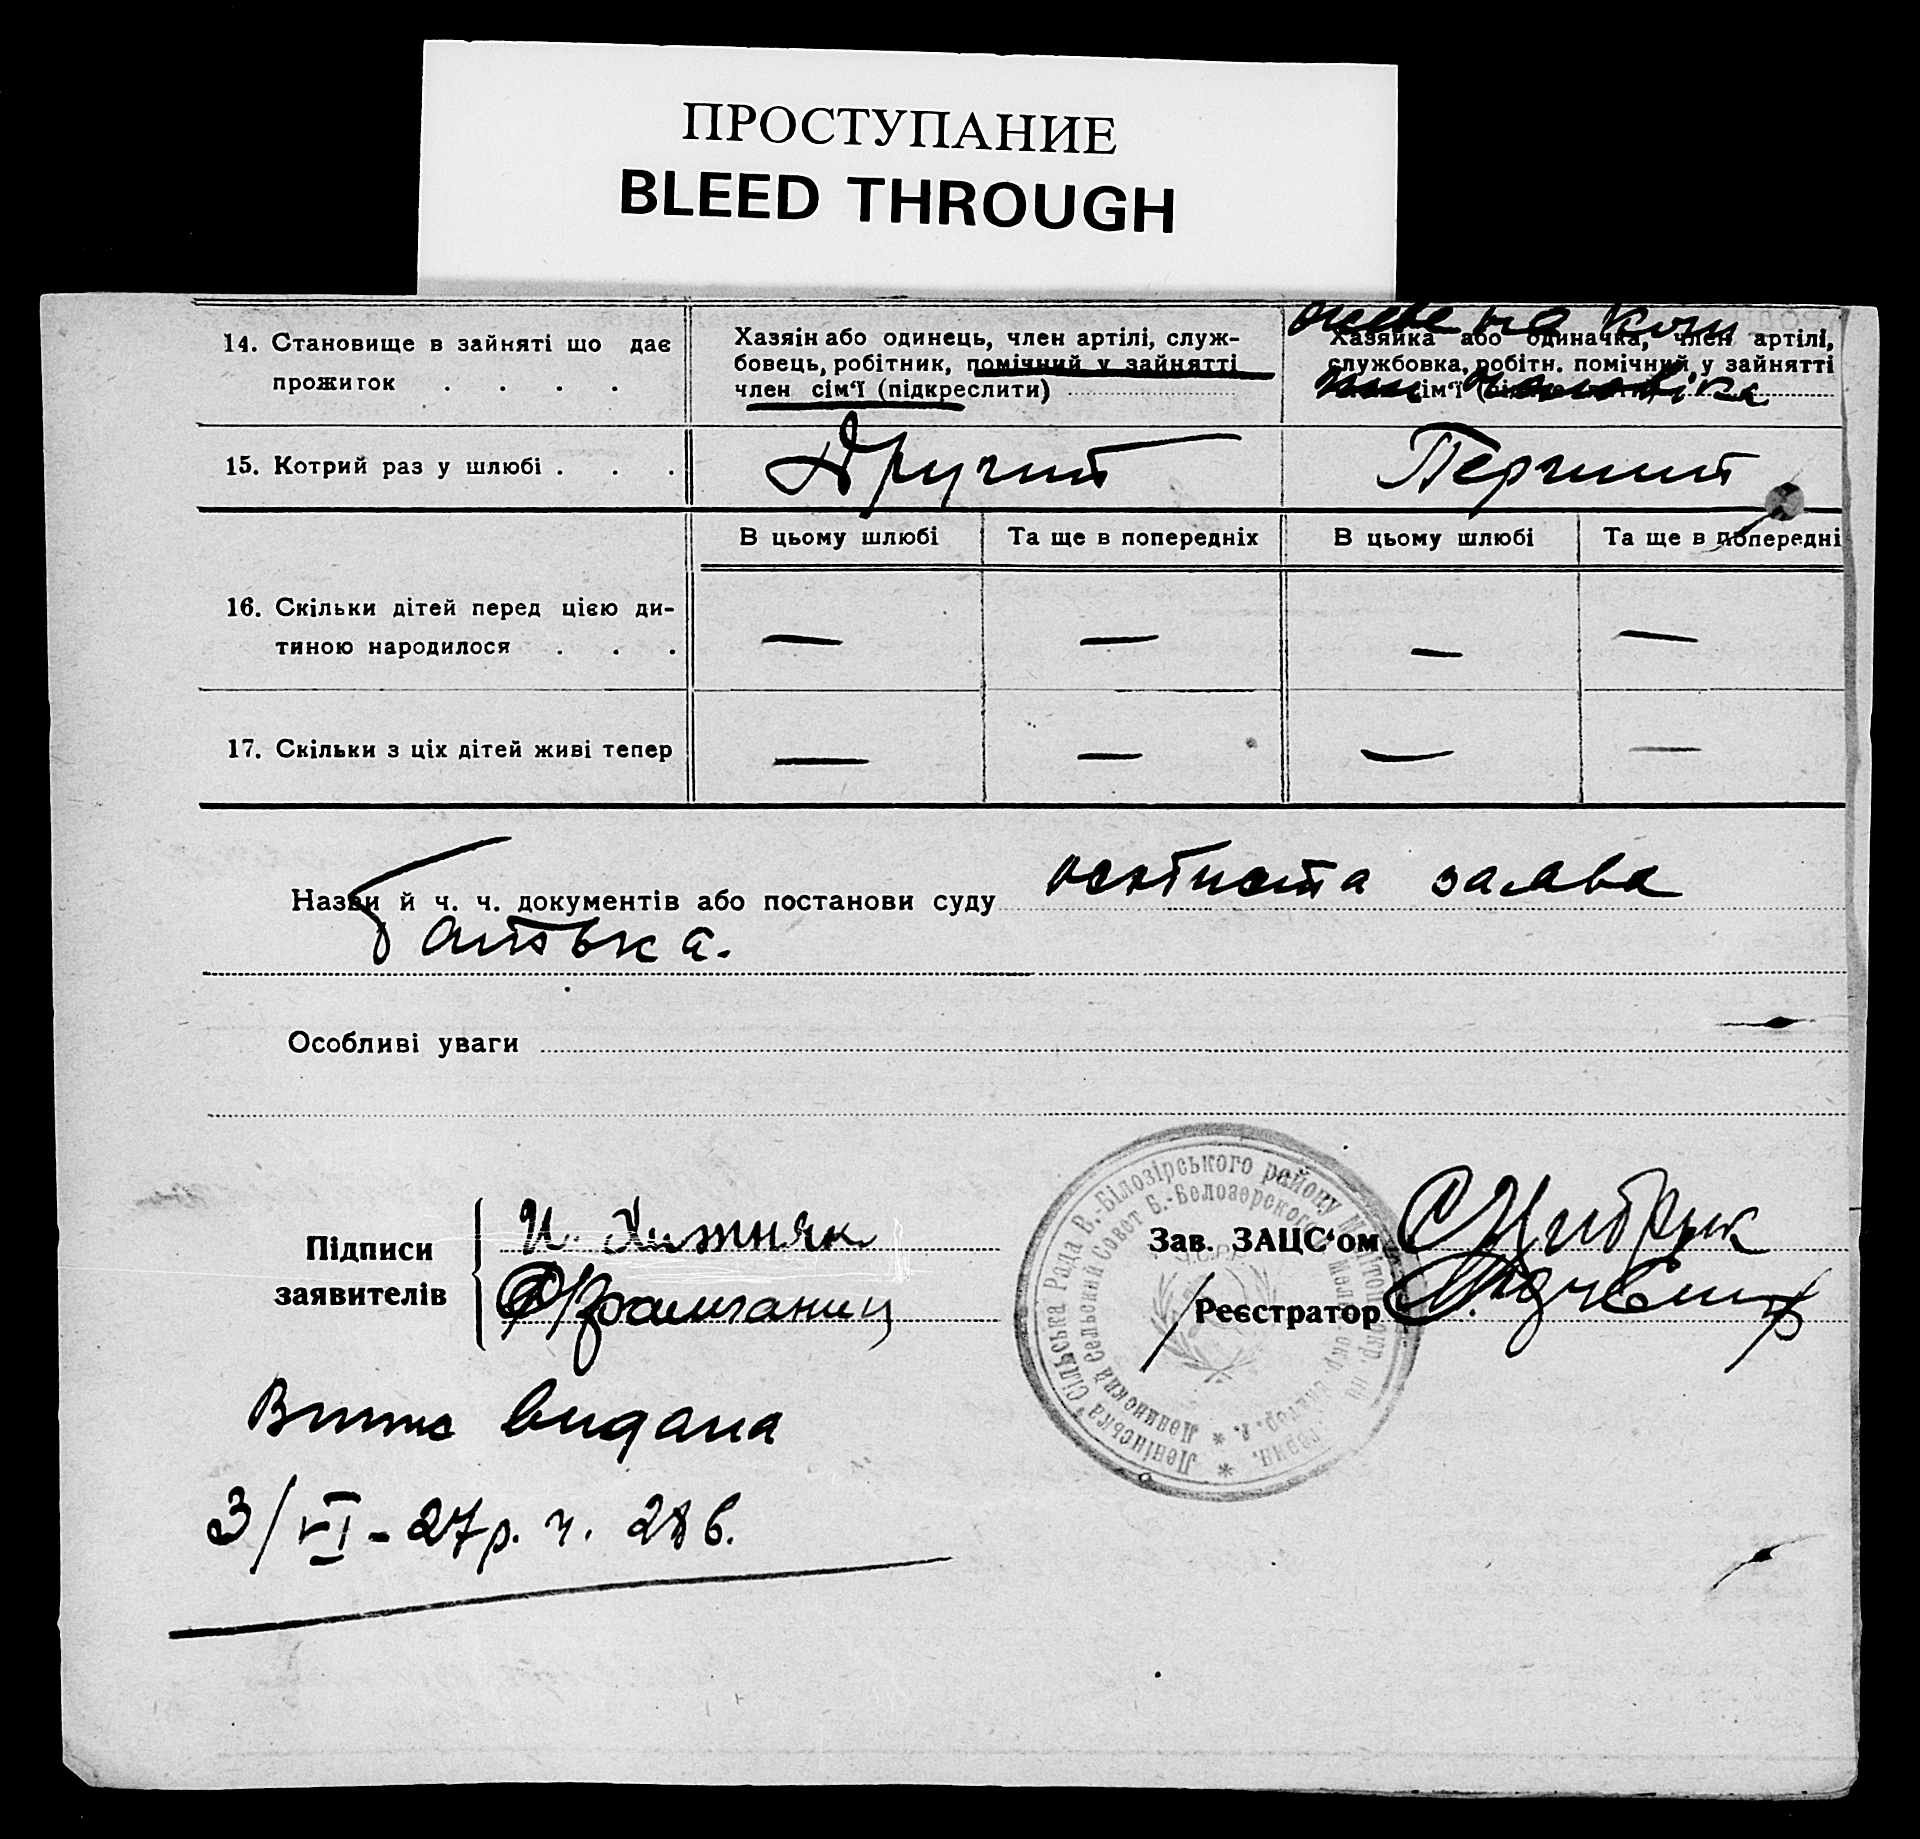 ПРОСТУПАНИЕ
BLEED THROUGH
14. Становище в зайняті що дає прожиток . . . .
Хазяін або одинець, член артілі, служ-
бовець, робітник, помічний у зайнятті
член сім'ї (підкреслити)
живе на кош
Хазяйка або одиначка, член артілі,
службовка, робітн. помічний у зайнятті
сім'ї
чоловіка
15. Котрий раз у шлюбі . . .
Другий
Перший
В цьому шлюбі
Та ще в попередніх
В цьому шлюбі
Та ще в попередні
16. Скільки дітей перед цією ди-
тиною народилося . . .
— — — —
17. Скільки з ціх дітей живі тепер
— — — —
Назви й ч. ч. документів або постанови суду особиста заява
батька.
Особливі уваги
Підписи
заявителів
И. Хижняк
Зав. ЗАЦС'ом
Реєстратор
Ленінська Сільська Рада В.-Білозірського району Мелітоп. окр. на
Ленинский Сельский Совет Б.-Белозерского
видана
3/VI-27р. ч. 28 в.